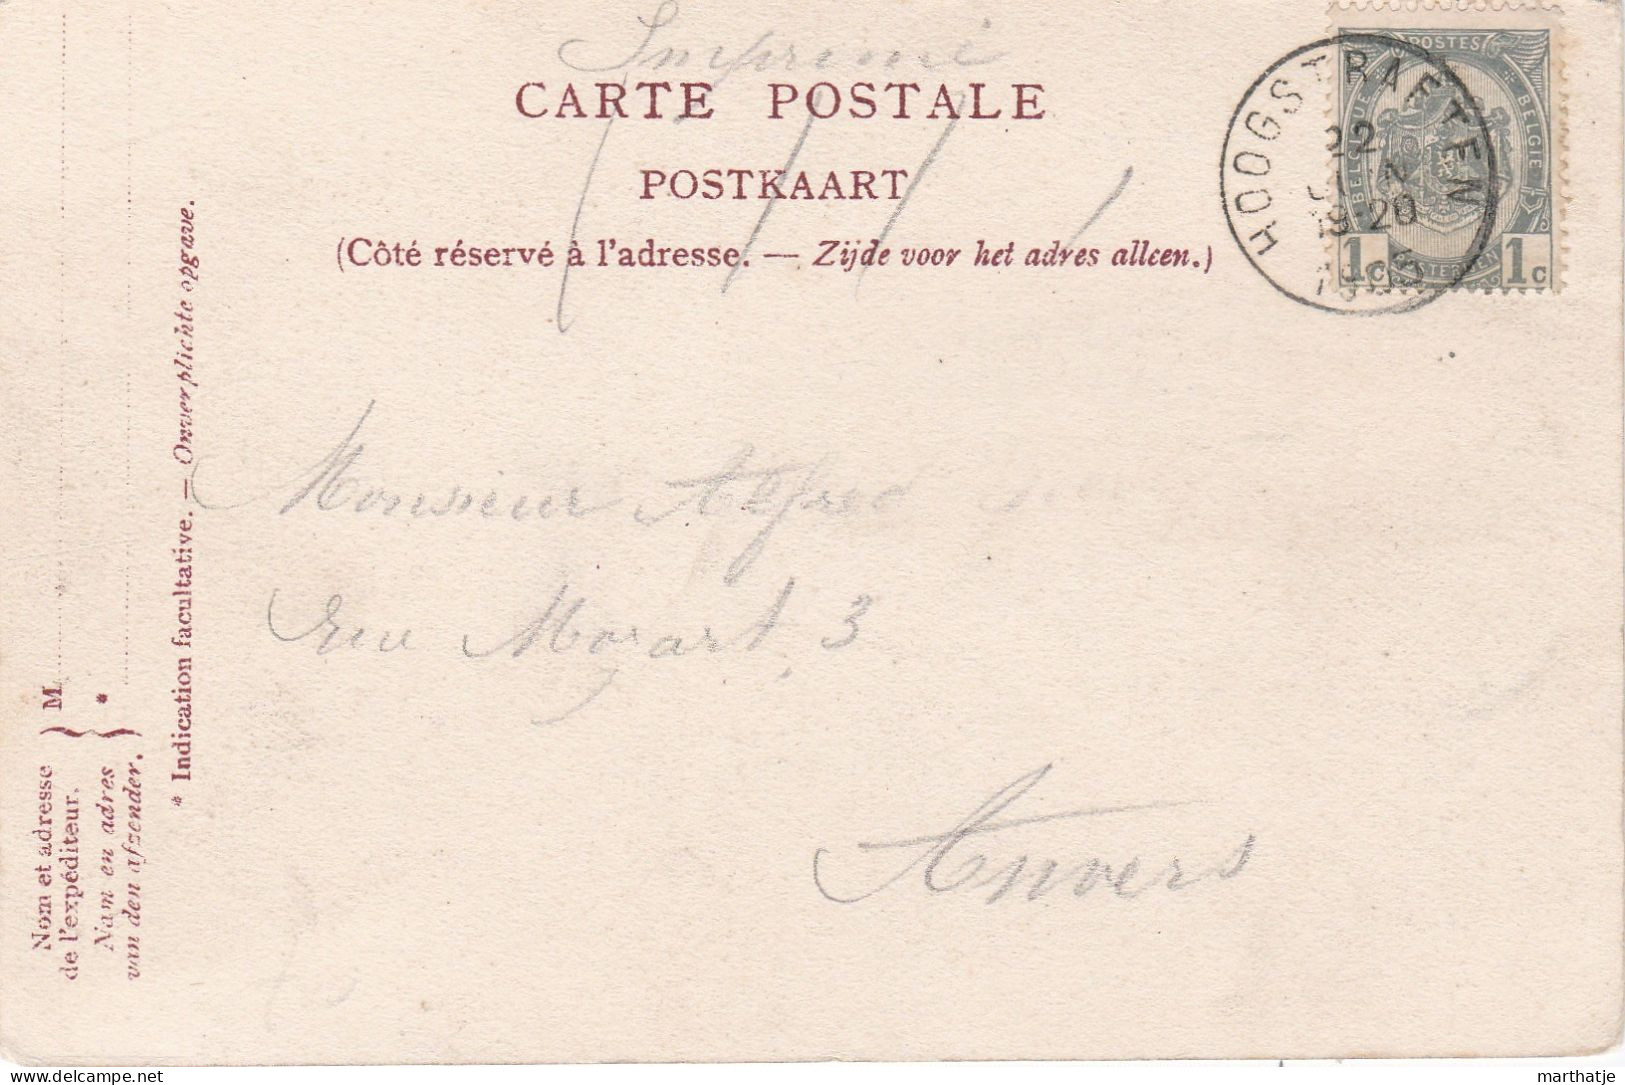 Imprimé
CARTE POSTALE
POSTKAART
(Côté réservé à l'adresse. — Zijde voor het adres alleen.)
POSTES
BELGIQUE
BELGIE
POSTERIJEN
1c
1c
HOOGSTRAETEN
22
18-20
Monsieur Alfred
Rue Mozart 3
Anvers
Nom et adresse
de l'expéditeur.
Nam en adres
van den afzender.
} M
} *
* Indication facultative. — Onverplichte opgave.
marthatje